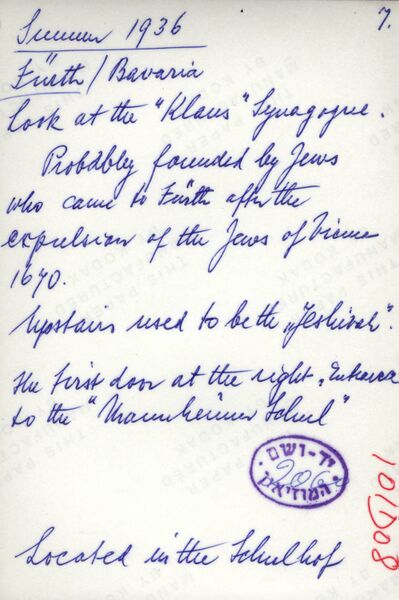 Summer 1936
7.
Fürth/Bavaria
Look at the "Klaus" Synagogue.
Probably founded by Jews
who came to Fürth after the
expulsion of the Jews of Vienne
1670.
Upstairs used to be the „Jeshivah".
The first door at the right „Entrance
to the "Mannheimer Schul"
יד-ושם
206
המוזיאון
101508
Located in the Schulhof